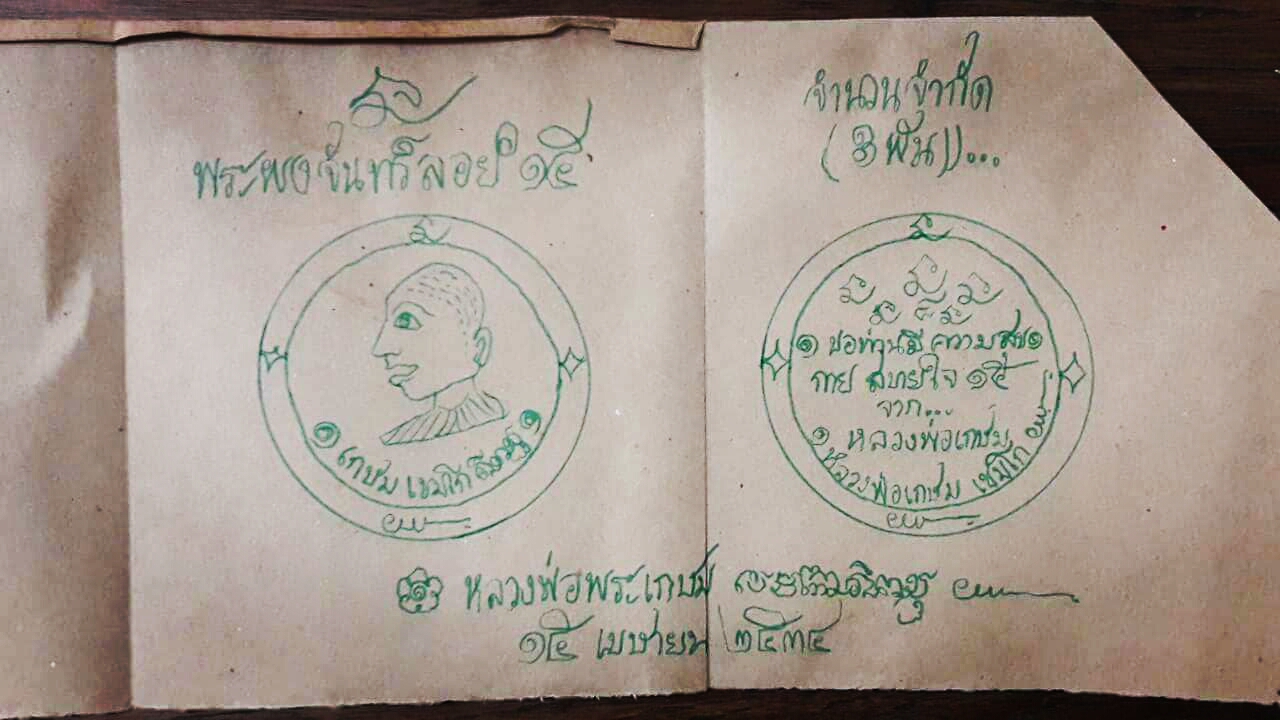 พระผงจันทร์ลอย ๑๕
เกษม เขมโก
จำนวนจำกัด
(๓ พัน)...
๑ ขอท่านมีความสุข๑
กาย สบายใจ ๑๕
จาก...
๑ หลวงพ่อเกษม
หลวงพ่อเกษม เขมโก
หลวงพ่อพระเกษม
๑๕ เมษายน ๒๕๓๔